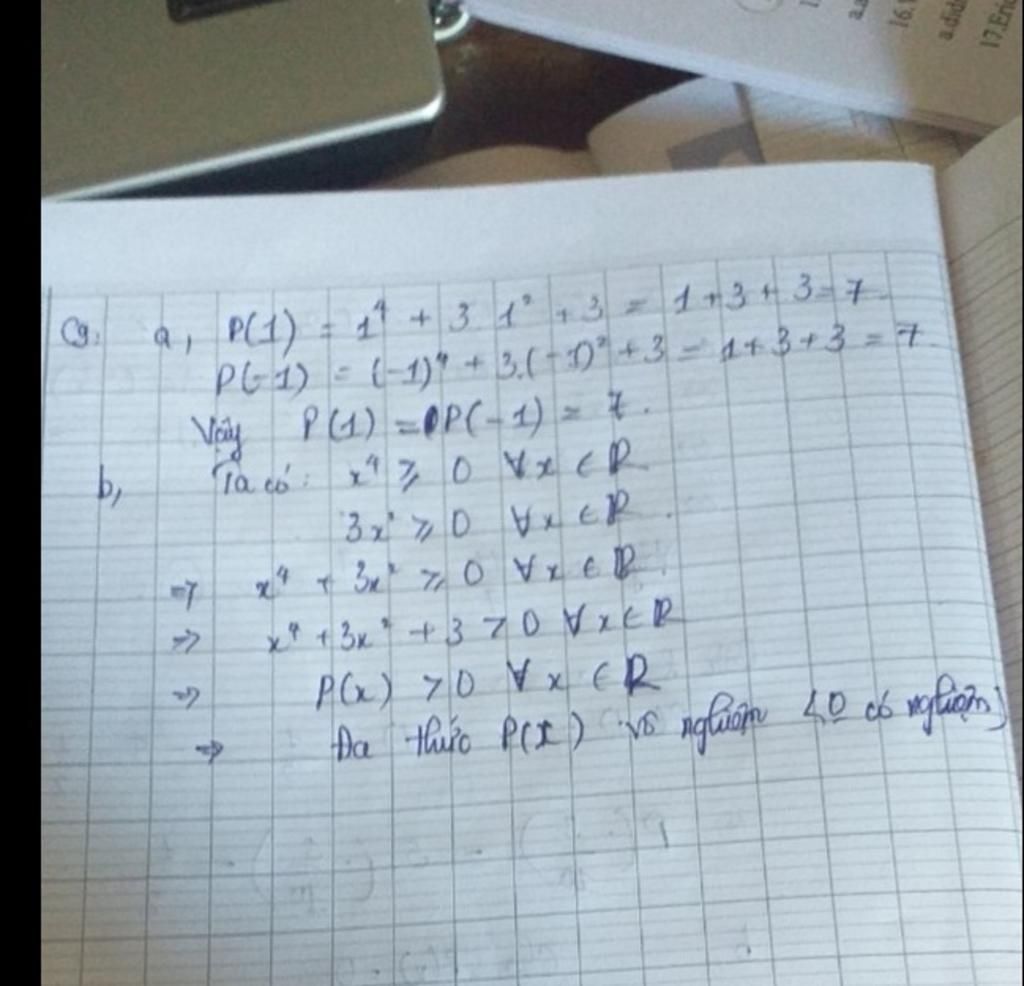 C9: a, P(1) = 1⁴ + 3 1² + 3 = 1 + 3 + 3 = 7
P(-1) = (-1)⁴ + 3.(-1)² + 3 = 1 + 3 + 3 = 7.
Vậy P(1) = P(-1) = 7.
b, Ta có: x⁴ ⩾ 0 ∀x ∈ R
3x² ⩾ 0 ∀x ∈ R.
=> x⁴ + 3x² ⩾ 0 ∀x ∈ R.
=> x⁴ + 3x² + 3 > 0 ∀x ∈ R
=> P(x) > 0 ∀x ∈ R
=> Đa thức P(x) vô nghiệm (0 có nghiệm)
16.
17.